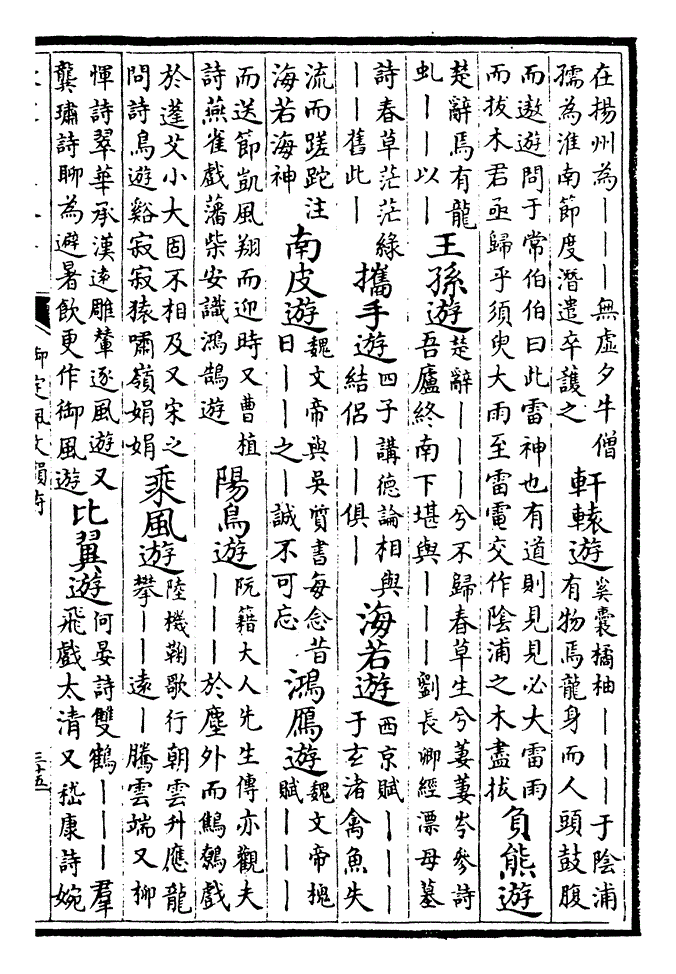 在揚州為｜｜｜無虛夕牛僧
孺為淮南節度潛遣卒護之
軒轅遊
奚囊橘柚｜｜｜于陰浦
有物焉龍身而人頭鼓腹
而遨遊問于常伯伯曰此雷神也有道則見見必大雷雨
而拔木君亟歸乎須臾大雨至雷電交作陰浦之木盡拔
負熊遊
楚辭焉有龍
虬｜｜以｜
王孫遊
楚辭｜｜｜兮不歸春草生兮萋萋岑參詩
吾廬終南下堪與｜｜｜劉長卿經漂母墓
詩春草茫茫綠
｜｜舊此｜
攜手遊
四子講德論相與
結侶｜｜俱｜
海若遊
西京賦｜｜｜
于玄渚禽魚失
流而蹉跎注
海若海神
南皮遊
魏文帝與吳質書每念昔
日｜｜之｜誠不可忘
鴻鴈遊
魏文帝槐
賦｜｜｜
而送節凱風翔而迎時又曹植
詩燕雀戲藩柴安識鴻鵠遊
陽鳥遊
阮籍大人先生傳亦觀夫
｜｜｜於塵外而鷦鷯戲
於蓬艾小大固不相及又宋之
問詩鳥遊谿寂寂猿嘯嶺娟娟
乘風遊
陸機鞠歌行朝雲升應龍
攀｜｜遠｜騰雲端又柳
惲詩翠華承漢遠雕輦逐風遊又
龔璛詩聊為避暑飲更作御風遊
比翼遊
何晏詩雙鶴｜｜｜羣
飛戲太清又嵇康詩婉
御定佩文韻府
三十五